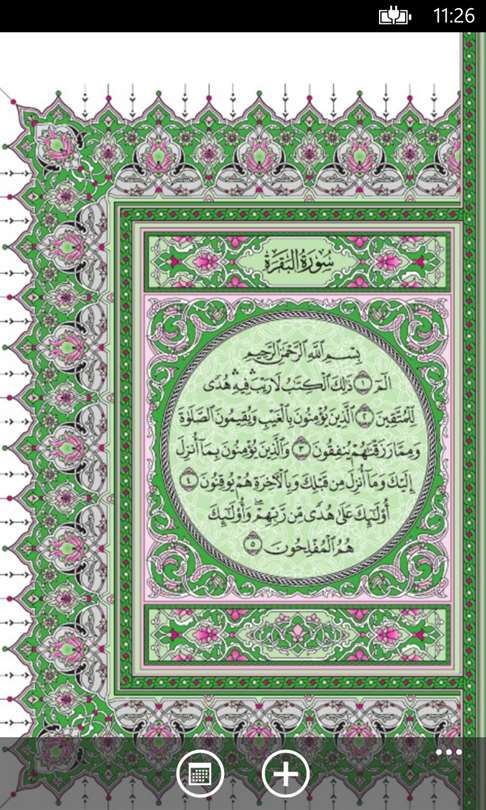 11:26
سُورَةُ البَقَرَةِ
بِسْمِ ٱللَّهِ ٱلرَّحْمَٰنِ ٱلرَّحِيمِ
الٓمٓ ١ ذَٰلِكَ ٱلْكِتَٰبُ لَا رَيْبَ ۛ فِيهِ ۛ هُدًى
لِّلْمُتَّقِينَ ٢ ٱلَّذِينَ يُؤْمِنُونَ بِٱلْغَيْبِ وَيُقِيمُونَ ٱلصَّلَوٰةَ
وَمِمَّا رَزَقْنَٰهُمْ يُنفِقُونَ ٣ وَٱلَّذِينَ يُؤْمِنُونَ بِمَآ أُنزِلَ
إِلَيْكَ وَمَآ أُنزِلَ مِن قَبْلِكَ وَبِٱلْءَاخِرَةِ هُمْ يُوقِنُونَ ٤
أُو۟لَٰٓئِكَ عَلَىٰ هُدًى مِّن رَّبِّهِمْ ۖ وَأُو۟لَٰٓئِكَ
هُمُ ٱلْمُفْلِحُونَ ٥